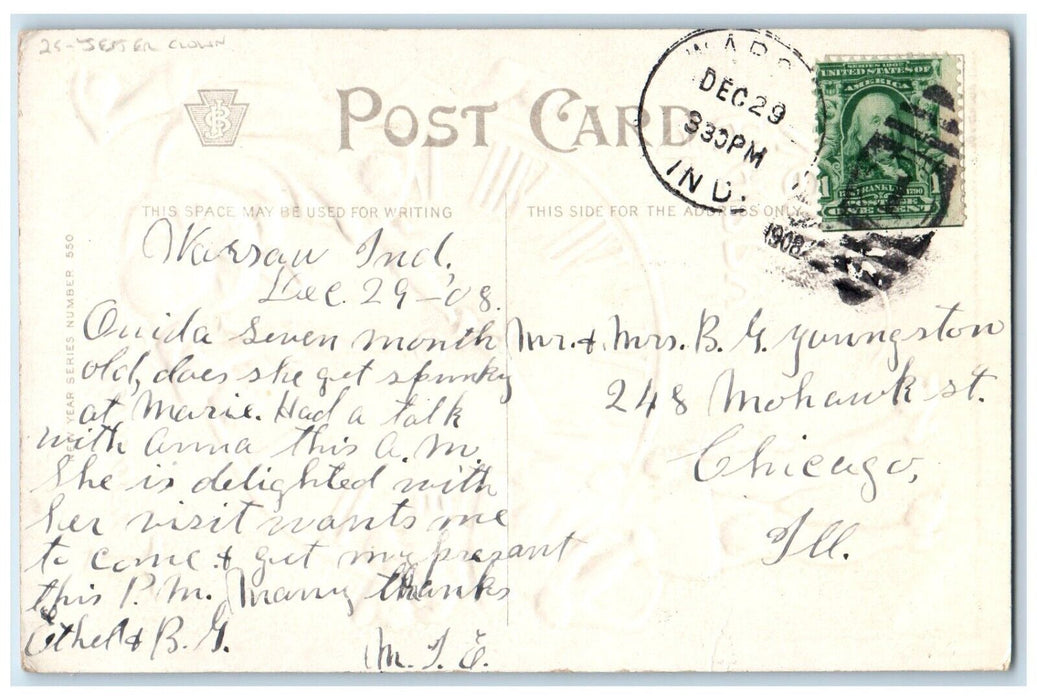 25-JESTER CLOWN
POST CARD
WARS
DEC 29
830PM
IND.
1908
SERIES 1902
UNITED STATES OF
AMERICA
1 FRANKLIN 1790
POSTAGE
1 ONE CENT 1
THIS SPACE MAY BE USED FOR WRITING
THIS SIDE FOR THE ADDRESS ONLY
YEAR SERIES NUMBER 550
Warsaw Ind,
Dec. 29-08.
Ouida seven month
old, does she get spunky
at Marie. Had a talk
with anna this A.M.
She is delighted with
her visit wants me
to come & get my presant
this P.M. Many thanks
Ethel & B.G.
M. T. E.
Mr. & Mrs. B. G. Youngston
248 Mohawk st.
Chicago,
Ill.